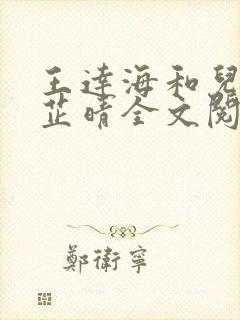 王達海和兒
芷晴全文閱
鄭衛寧